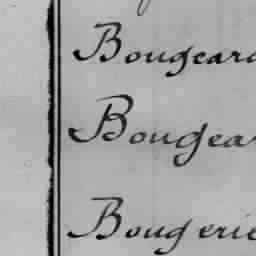 Bougeard
Bougear
Bougerie